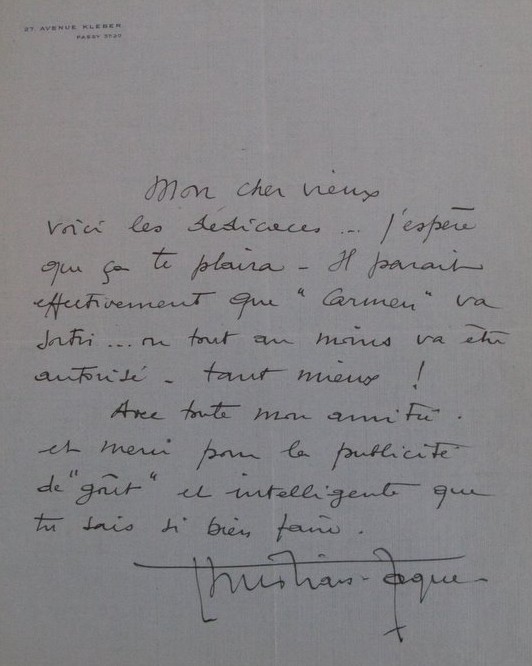 27 AVENUE KLEBER
PASSY 3720
Mon cher vieux
voici les dédicaces ... j'espère
que ça te plaira - Il parait
effectivement que "Carmen" va
sortir ... ou tout au moins va être
autorisé - tant mieux !
Avec toute mon amitié .
et merci pour la publicité
de "goût" et intelligente que
tu sais si bien faire .
Christian-Jaque